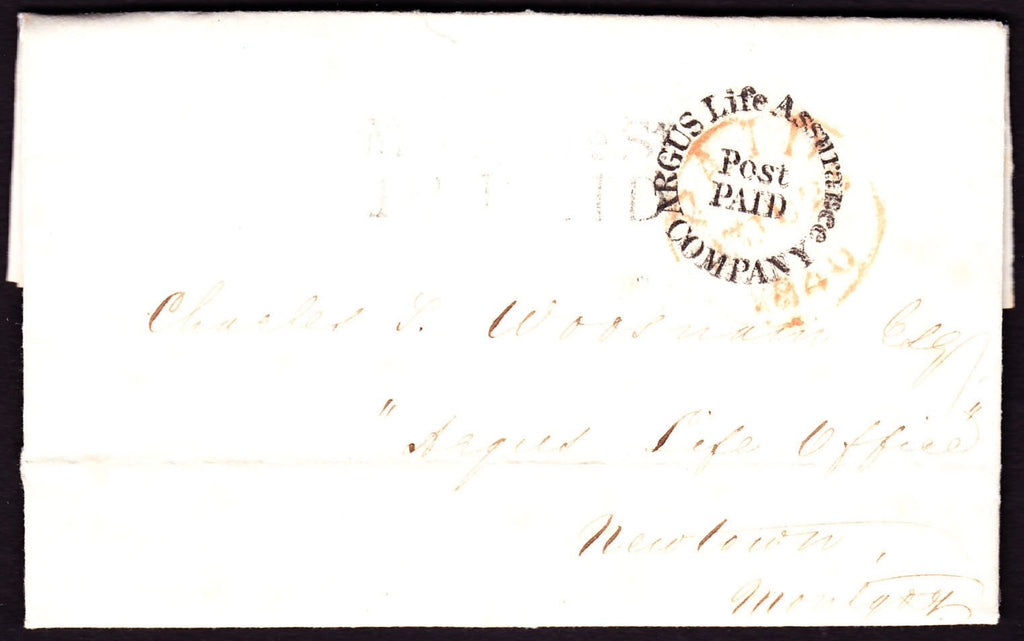 ARGUS Life Assurance
COMPANY
Post
PAID
PAID
1840
Charles T. Woosnam Esq
"Argus Life Office"
Newtown,
Montgoy